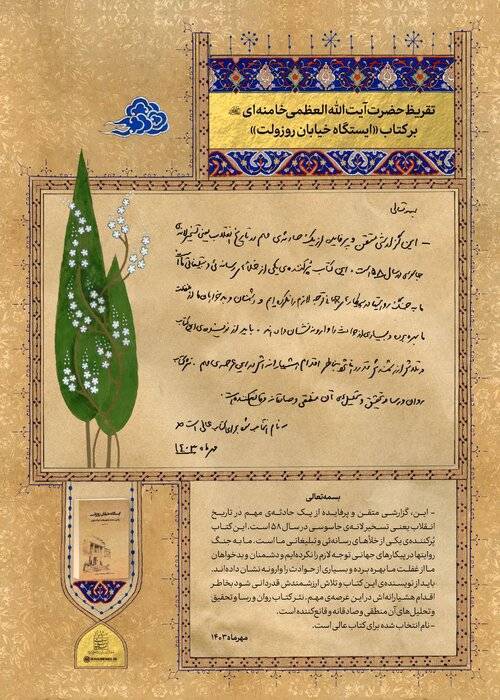 تقریظ حضرت آیت‌الله العظمی خامنه‌ای
بر کتاب «ایستگاه خیابان روزولت»
بسمه تعالی
- این گزارشی متقن و پرفایده از یک حادثه‌ی مهم در تاریخ انقلاب یعنی تسخیر لانه‌ی
جاسوسی در سال ۵۸ است. این کتاب پُرکننده‌ی یکی از خلأهای رسانه‌ئی و تبلیغاتی ما است.
ما به جنگ روایتها در پیکارهای جهانی توجه لازم را نکرده‌ایم و دشمنان و بدخواهان ما از غفلت
ما بهره برده و بسیاری از حوادث را وارونه نشان داده‌اند. باید از نویسنده‌ی این کتاب
و تلاش ارزشمندش قدردانی شود بخاطر اقدام هشیارانه‌اش در این عرصه‌ی مهم. نثر کتاب
روان و رسا و تحقیق و تحلیل‌های آن منطقی و صادقانه و قانع‌کننده است.
- نام انتخاب شده برای کتاب عالی است
مهرماه ۱۴۰۳
بسمه‌تعالی
- این، گزارشی متقن و پرفایده از یک حادثه‌ی مهم در تاریخ
انقلاب یعنی تسخیر لانه‌ی جاسوسی در سال ۵۸ است. این کتاب
پُرکننده‌ی یکی از خلأهای رسانه‌ئی و تبلیغاتی ما است. ما به جنگ
روایتها در پیکارهای جهانی توجه لازم را نکرده‌ایم و دشمنان و بدخواهان
ما از غفلت ما بهره برده و بسیاری از حوادث را وارونه نشان داده‌اند.
باید از نویسنده‌ی این کتاب و تلاش ارزشمندش قدردانی شود بخاطر
اقدام هشیارانه‌اش در این عرصه‌ی مهم. نثر کتاب روان و رسا و تحقیق
و تحلیل‌های آن منطقی و صادقانه و قانع‌کننده است.
- نام انتخاب شده برای کتاب عالی است.
مهرماه ۱۴۰۳
ایستگاه خیابان روزولت